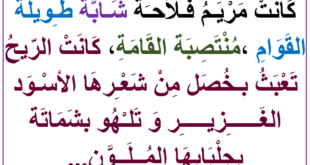 كَانَتْ مَرْيَمُ فَلاحَة شَابَّة طَوِيلَة
القَوَامِ ،مُنْتَصِبَة القَامَةِ، كَانَتْ الرِّيحُ
تَعْبَثُ بِخُصَل مِنْ شَعْرِهَا الأسْوَد
الغَـــــزِيــــرِ وَ تَلْـهُو بِشَمَاتَة
بِجِلْبَابِهَا المُـلَـــوَّنِ...